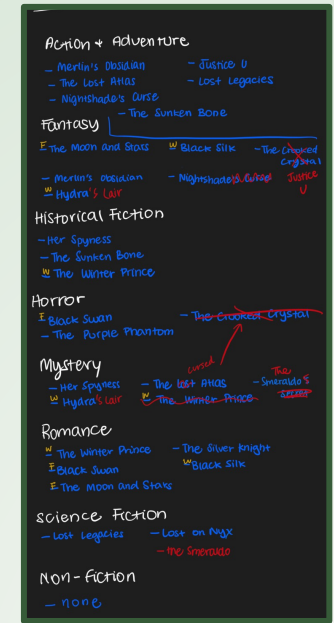 Action + Adventure
- Merlin's Obsidian - Justice U
- The Lost Atlas - Lost Legacies
- Nightshade's Curse
- The Sunken Bone
Fantasy
E The Moon and Stars W Black Silk - The Crooked Crystal
- Merlin's Obsidian - Nightshade's Justice U
W Hydra's Lair
Historical Fiction
- Her Spyness
- The Sunken Bone
W The Winter Prince
Horror
E Black Swan - The Crooked Crystal
- The Purple Phantom
cursed
Mystery The
- Her Spyness - The lost Atlas - Smeraldo's
W Hydra's Lair W The Winter Prince secret
Romance
W The Winter Prince - The Silver Knight
E Black Swan W Black Silk
E The Moon and Stars
science Fiction
- Lost Legacies - Lost on Nyx
- The Smeraldo
Non-fiction
- none